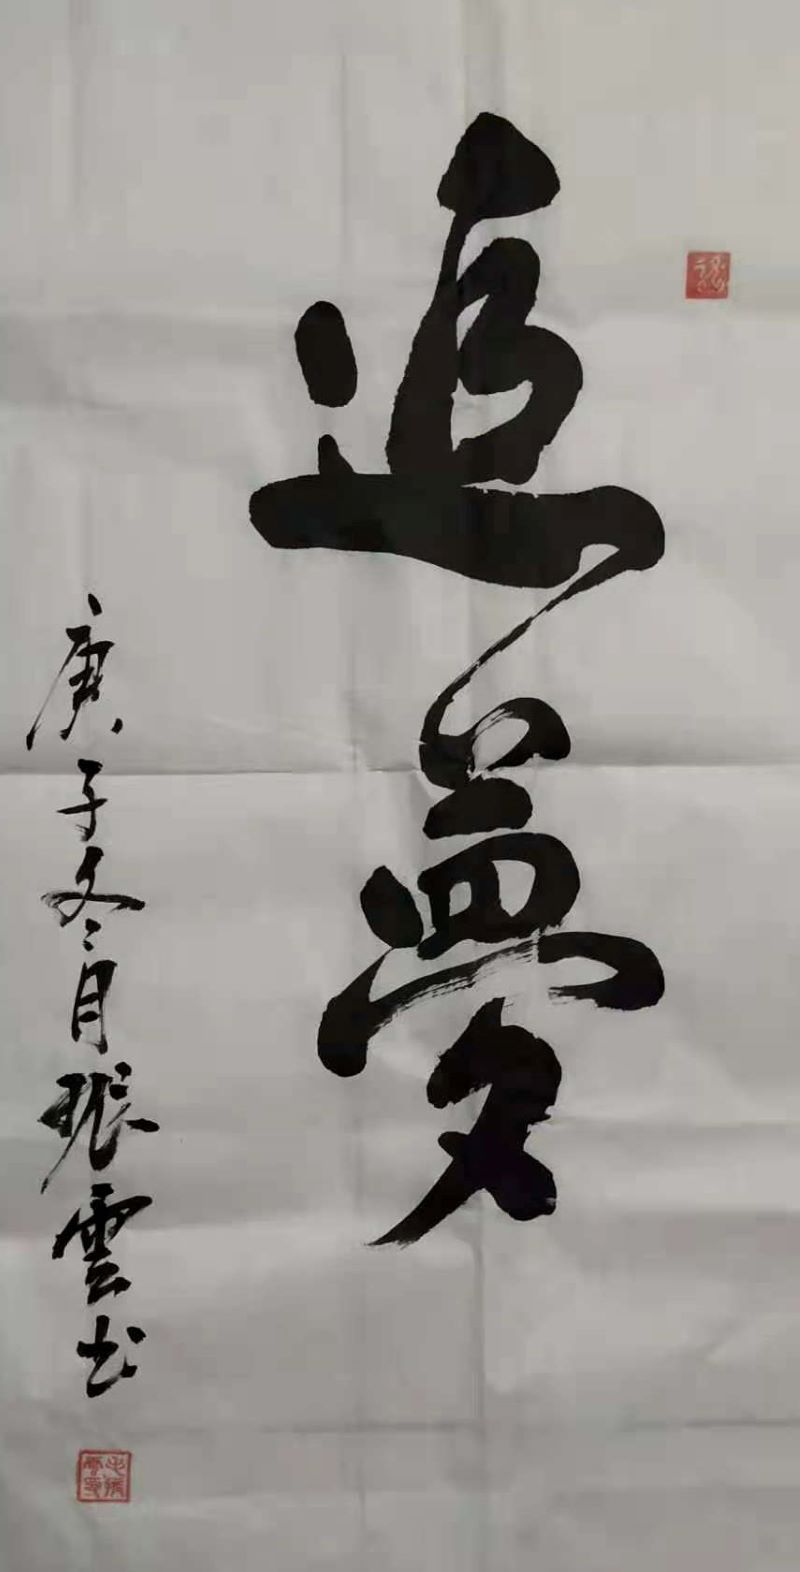 追夢
庚子冬月振雲书